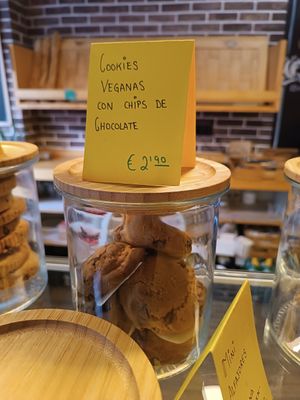 COOKIES
VEGANAS
CON CHIPS DE
CHOCOLATE
€ 2'90
MINI
ALFAJORES